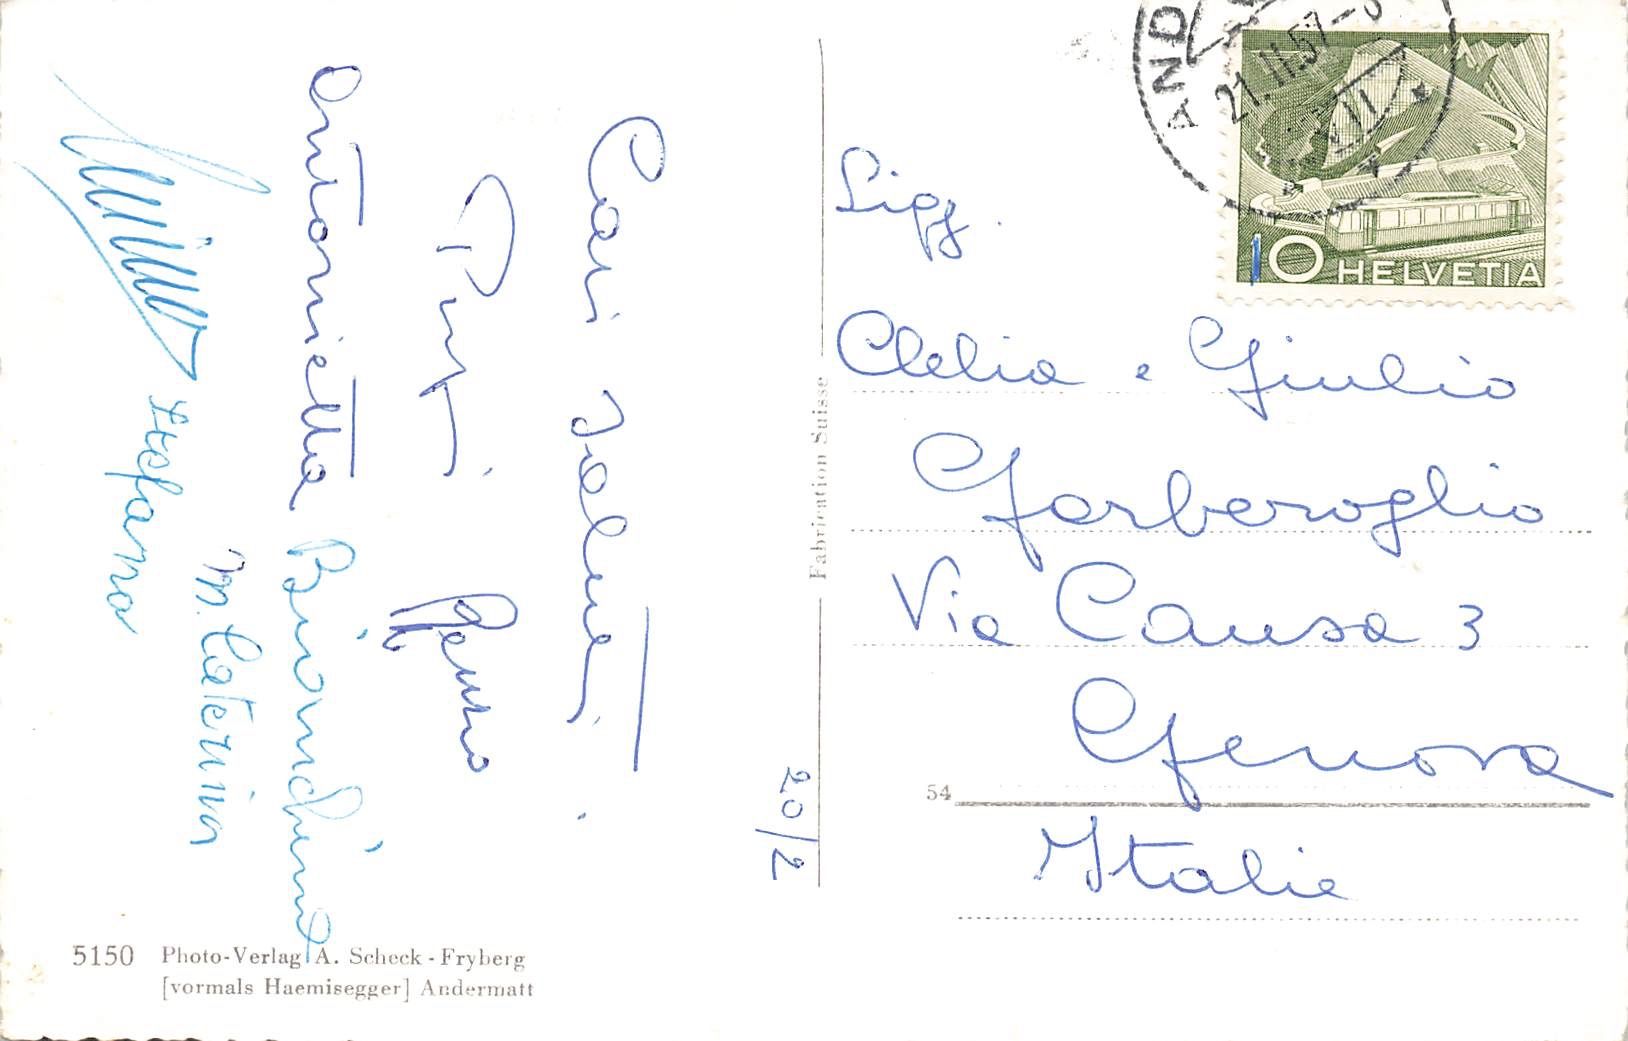 Cari saluti.
Pupi
Antonietta
Biondino
M. Caterina
Stefania
20/2
Fabrication Suisse
AND
21.II.57-
XII
10 HELVETIA
Sigg.
Clelia e Giulio
Garberoglio
Via Causa 3
Genova
54
Italia
5150 Photo-Verlag A. Scheck - Fryberg
[vormals Haemisegger] Andermatt